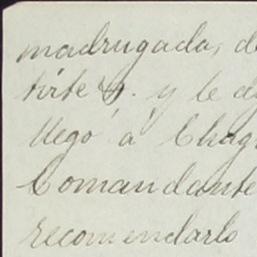 madrugada, de
tirte y le
llegó á Chag
Comandante
recomendarlo